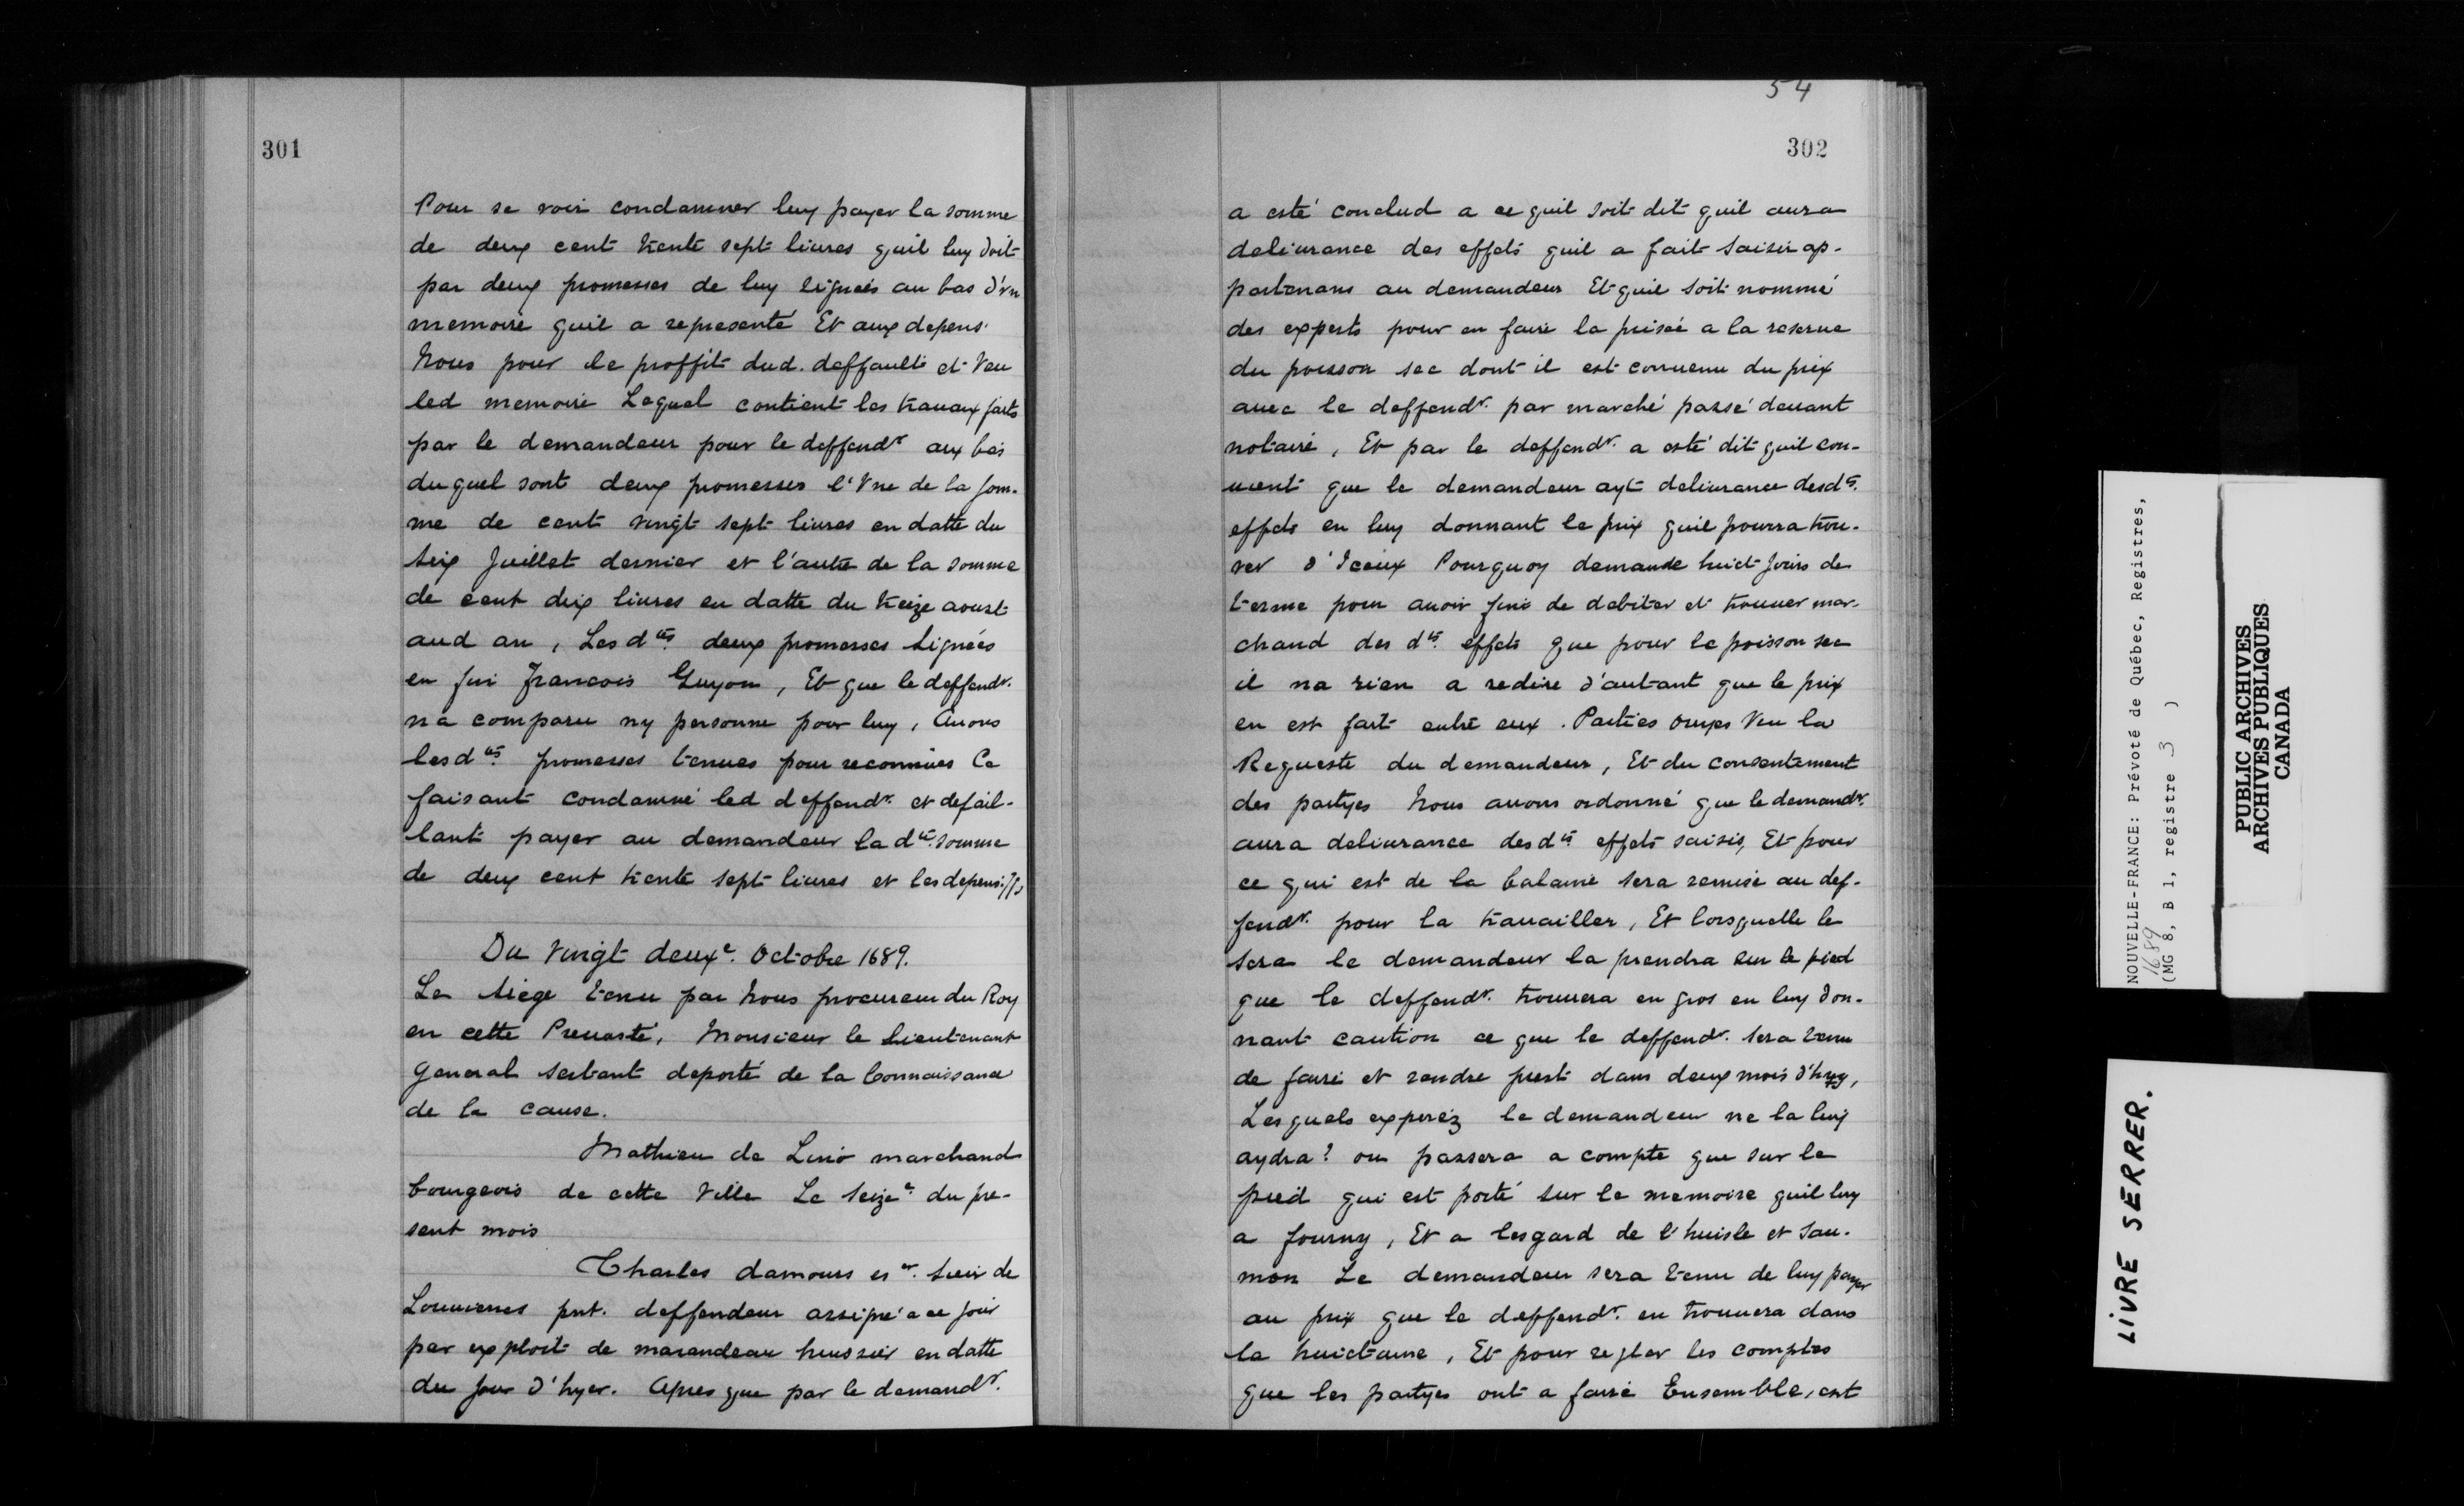 301
Pour se voir condamner luy payer la somme
de deux cent trente sept liures quil luy doit
par deux promesses de luy signées au bas d'vn
memoire quil a representé Et aux depens.
Nous pour le proffit dud. deffaulte et Veu
led memoire Lequel contient les trauaux faits
par le demandeur pour le deffendr aux bas
duquel sont deux promesses l'Vne de la som-
me de cent vingt sept liures en datte du
six Juillet dernier et l'autre de la somme
de cent dix liures en datte du treize aoust
aud an, Lesdtes deux promesses signées
en fin Francois Guyon, Et que le deffendr.
na comparu ny personne pour luy, Auons
lesdtes promesses tenues pour reconnues Ce
faisant condamné led deffendr. et defail-
lant payer au demandeur la dte. somme
de deux cent trente sept liures et les depens.
Du Vingt deuxe. Octobre 1689.
Le siège tenu par Nous procureur du Roy
en cette Preuosté, Monsieur le Lieutenant
General sestant deporté de la Connaissance
de la cause.
Mathieu de Lino marchand
bourgeois de cette Ville Le seize. du pre-
sent mois
Charles damours eser. sieur de
Louuieres pnt. deffendeur assigné a ce jour
par exploit de marandeau huissier en datte
du jour d'hyer. Apres que par le demandr.
54
302
a esté conclud a ce quil soit dit quil aura
deliurance des effets quil a fait saisir ap-
partenans au demandeur Et quil soit nommé
des experts pour en faire la prisée a la reserue
du poisson sec dont il est conuenu du prix
auec le deffendr. par marché passé deuant
notaire, Et par le deffendr. a esté dit quil con-
uient que le demandeur ayt deliurance desdts.
effets en luy donnant le prix quil pourra trou-
ver d'Iceux Pourquoy demande huict jours de
terme pour auoir fini de debiter et trouuer mar-
chand des dts. effets que pour le poisson sec
il na rien a redire d'autant que le prix
en est fait entre eux. Parties ouyes Veu la
Requeste du demandeur, Et du consentement
des partyes Nous auons ordonné que le demandr.
aura deliurance desdts effets saisis, Et pour
ce qui est de la balaine sera remise au def-
fendr. pour la trauailler, Et lorsquelle le
sera le demandeur la prendra sur le pied
que le deffendr. trouuera en gros en luy don-
nant caution ce que le deffendr. sera tenu
de faire et rendre prest dans deux mois d'huy,
Lesquels expirez le demandeur ne la luy
aydra? ou passera a compte que sur le
pied qui est porté sur le memoire quil luy
a fourny, Et a lesgard de l'huisle et sau-
mon Le demandeur sera tenu de luy payer
au prix que le deffendr. en trouuera dans
la huictaine, Et pour regler les comptes
que les partyes ont a faire Ensemble, ont
NOUVELLE-FRANCE: Prévoté de Québec, Registres,
1689
(MG 8, B 1, registre 3 )
PUBLIC ARCHIVES
ARCHIVES PUBLIQUES
CANADA
LIVRE SERRER.